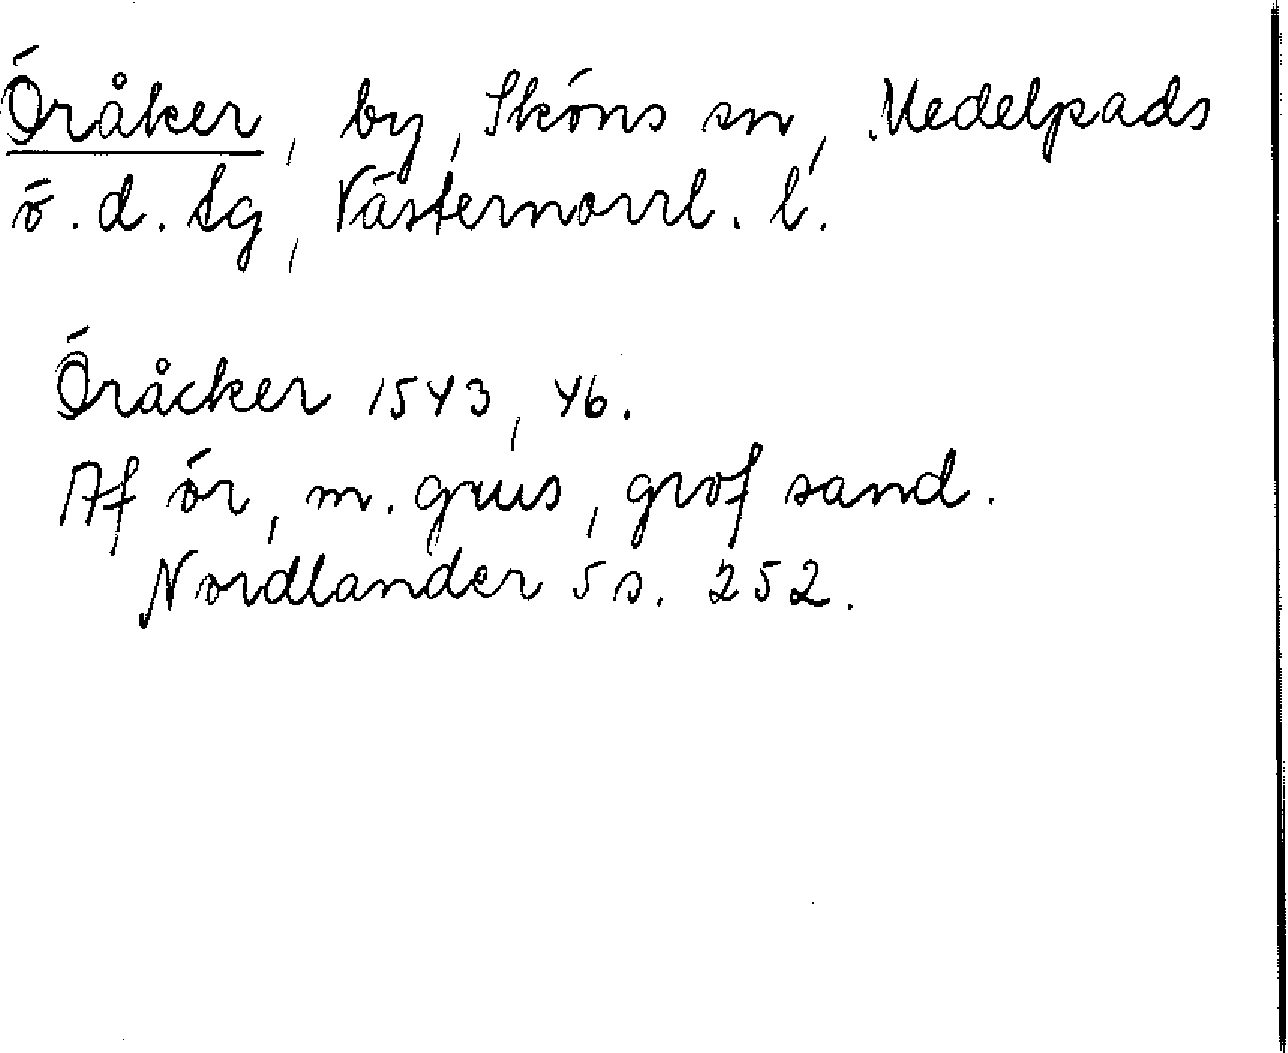 Öråker, by, Sköns sn, Medelpads
ö. d. tg, Västernorrl. l.
Öråcker 1543, 46.
Af ör, m. grus, grof sand.
Nordlander 5 s. 252.